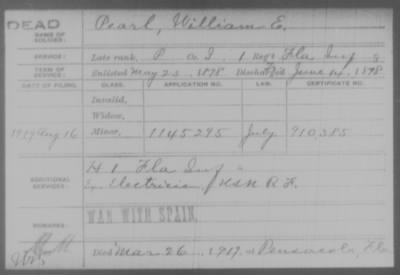 DEAD
NAME OF SOLDIER: Pearl, William E.
SERVICE: Late rank, P Co. I, 1 Reg't Fla Inf
TERM OF SERVICE: Enlisted May 23, 1898 Discharged June 14, 1898
DATE OF FILING. CLASS. APPLICATION NO. LAW. CERTIFICATE NO.
Invalid,
Widow,
1919 Aug 16 Minor, 1145295 July 910,385
ADDITIONAL SERVICES: H 1 Fla Inf
Electrician USN R F.
WAR WITH SPAIN.
REMARKS:
Died Mar. 26, 1919, at Pensacola, Fla